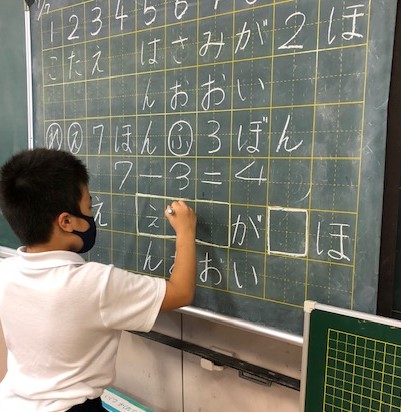 1 2 3 4 5 6
こたえ はさみが2ほ
んおおい
め え 7ほん ふ 3ぼん
7-3=4
え え が ほ
ん おい